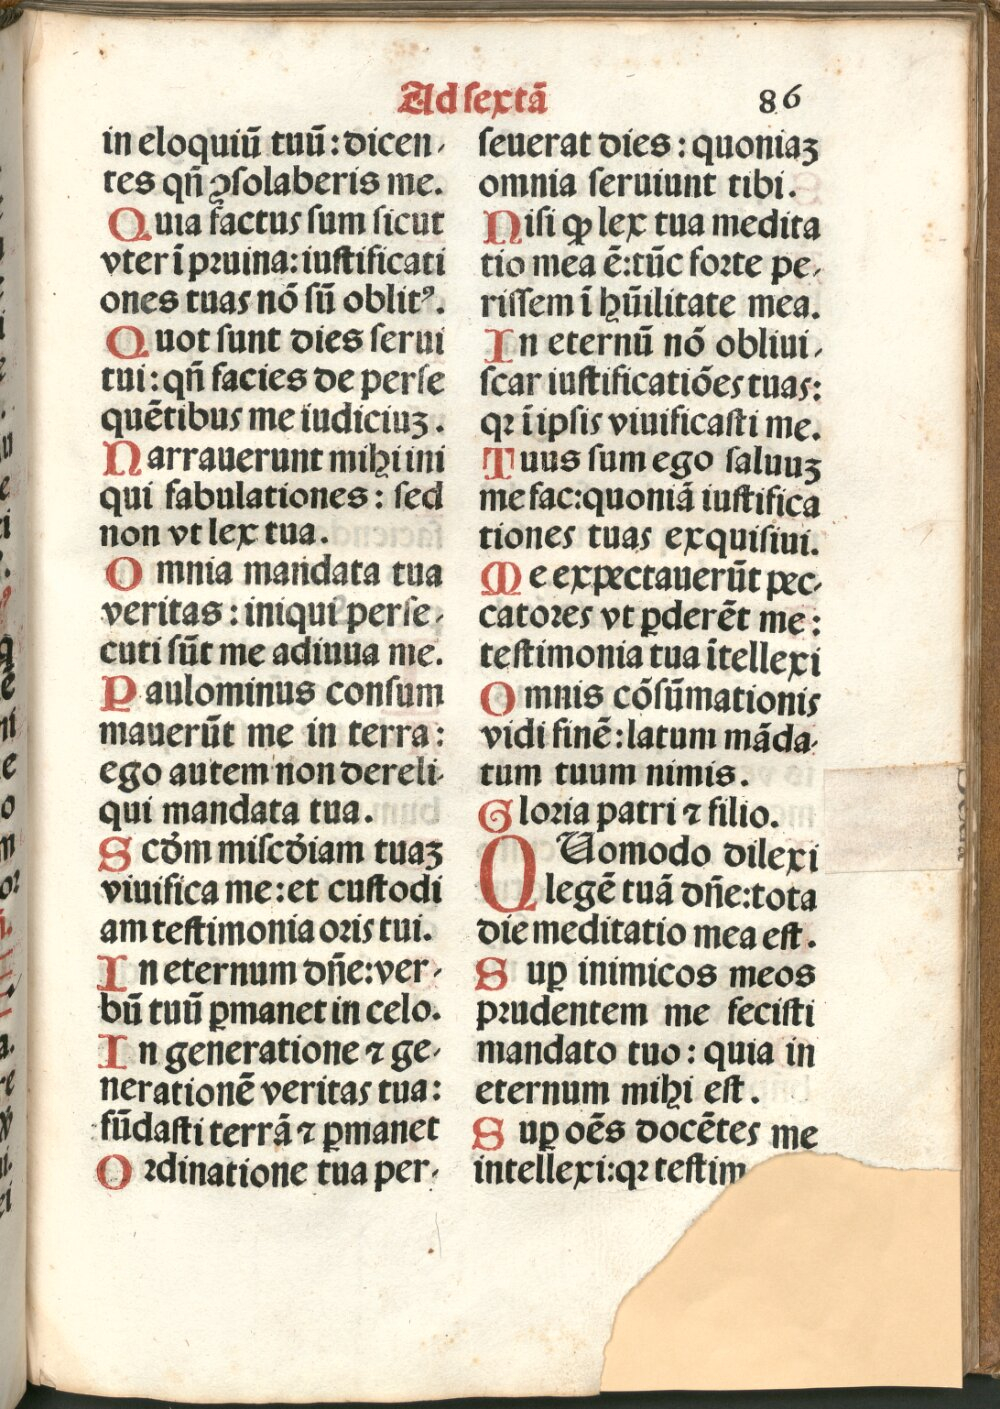 Ad sextã
86
in eloquiũ tuũ: dicen-
tes qñ ꝯsolaberis me.
Quia factus sum sicut
vter ĩ pruina: iustificati
ones tuas nõ sũ oblitꝰ.
Quot sunt dies serui
tui: qñ facies de perse
quẽtibus me iudiciuꝫ.
Narrauerunt mihi ini
qui fabulationes: sed
non vt lex tua.
Omnia mandata tua
veritas: iniqui perse-
cuti sũt me adiuua me.
Paulominus consum
mauerũt me in terra:
ego autem non dereli-
qui mandata tua.
Scd̃m miscd̃iam tuaꝫ
viuifica me: et custodi
am testimonia oris tui.
In eternum dñe: ver-
bũ tuũ ꝑmanet in celo.
In generatione ⁊ ge-
nerationẽ veritas tua:
fũdasti terrã ⁊ ꝑmanet
Ordinatione tua per-
seuerat dies: quoniaꝫ
omnia seruiunt tibi.
Nisi ꝙ lex tua medita
tio mea ẽ: tũc forte pe-
rissem ĩ hũilitate mea.
In eternũ nõ obliui-
scar iustificatiões tuas:
qꝛ ĩ ipsis viuificasti me.
Tuus sum ego saluuꝫ
me fac: quoniã iustifica
tiones tuas exquisiui.
Me expectauerũt pec-
catores vt ꝑderẽt me:
testimonia tua ĩtellexi
Omnis cõsũmationis
vidi finẽ: latum mãda-
tum tuum nimis.
Gloria patri ⁊ filio.
QUomodo dilexi
legẽ tuã dñe: tota
die meditatio mea est.
Suꝑ inimicos meos
prudentem me fecisti
mandato tuo: quia in
eternum mihi est.
Suꝑ oẽs docẽtes me
intellexi: qꝛ testim